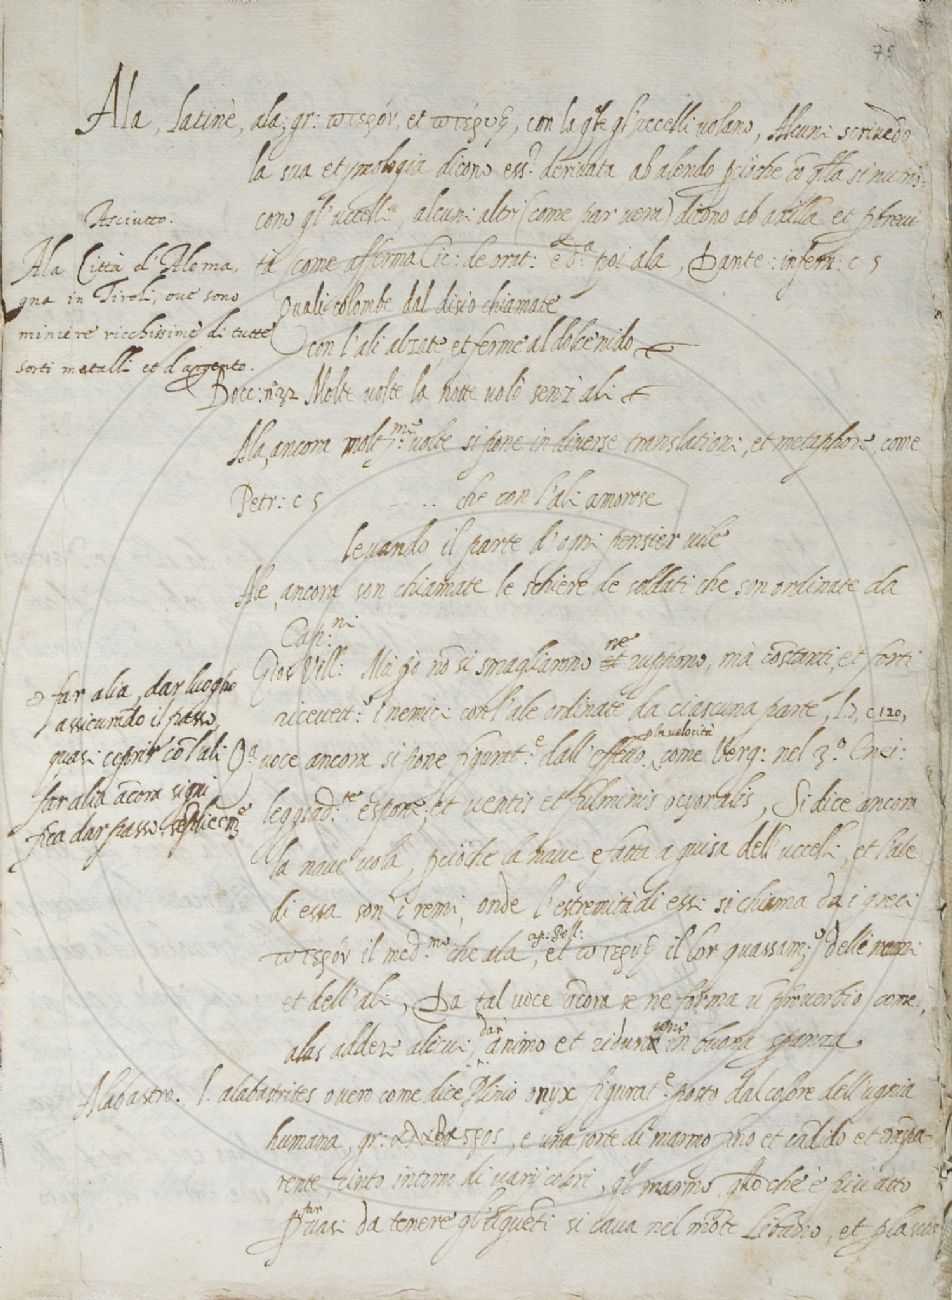 75
Ala, latinè, ala; gr: πτερόν, et πτέρυξ, con la qle gl'uccelli uolano, Alcuni scriuēdo
la sua etymologia dicono ess.e deriuata ab alendo pcioche cō q̄lla si nutris-
cono gl'uccelli, alcuni altri (come par uero) dicono ab axilla et p breui
tà come afferma Cic: de orat: poi ala, Dante: infern: c 5
Quali colombe dal disio chiamate
con l'ali alzate, et ferme al dolce nido
Bocc: n 32 Molte uolte la notte uolò senz'ali
Ala, ancora molt.me uolte si pone in diverse translationi, et metaphore, come
Petr: c 5 .... che con l'ali amorose
leuando il parte d'ogni pensier uile
Ale, ancora son chiamate le schiere de soldati che son ordinate da
Cap:ni
Gio: Vill: Ma pò nō si smagliarono ne et ruppono, ma costanti, et forti
riceuett.o i nemici con l'ale ordinate da ciascuna parte, l, c 120,
uoce ancora si pone figurat.e dall'effetto, p la uelocità come Verg: nel 3.o Enei:
leggiad.te espone, et uentis et fulminis ocyor alis, Si dice ancora
la naue uola, pcioche la naue è fatta a guisa dell'uccelli, et l'ale
di essa son i remi, onde l'estremità di essi si chiama da i greci
πτερόν il med.mo che ala, ap: Poll: et πτέρυξ il lor quassam.o delle remi
et dell'ali, Da tal uoce ācora se ne forma ū prouerbio come,
alas addere alicui, dar animo et ridurlo in buona speranza
Alabastro. l. alabastrites ouero come dice Plinio onyx figurat.e posto dal colore dell'ugnia
humana, gr: αλαβαστρος, è una sorte di marmo fino et candido et traspa-
rente, tinto intorno di uarij colori, ql marmo, qllo che è piu atto
p far uasi da tenere gl'unguēti si caua nel mōte Libano, et p la sua
Asciutto.
Ala Città d'Alema,
gna in Tiroli, oue sono
miniere ricchissime di tutte
sorti metalli et d'argento.
far alia, dar luogho
assicurando il passo
quasi coprir cō l'ali
far alia ācora signi
fica dar passo, sēplicem.e